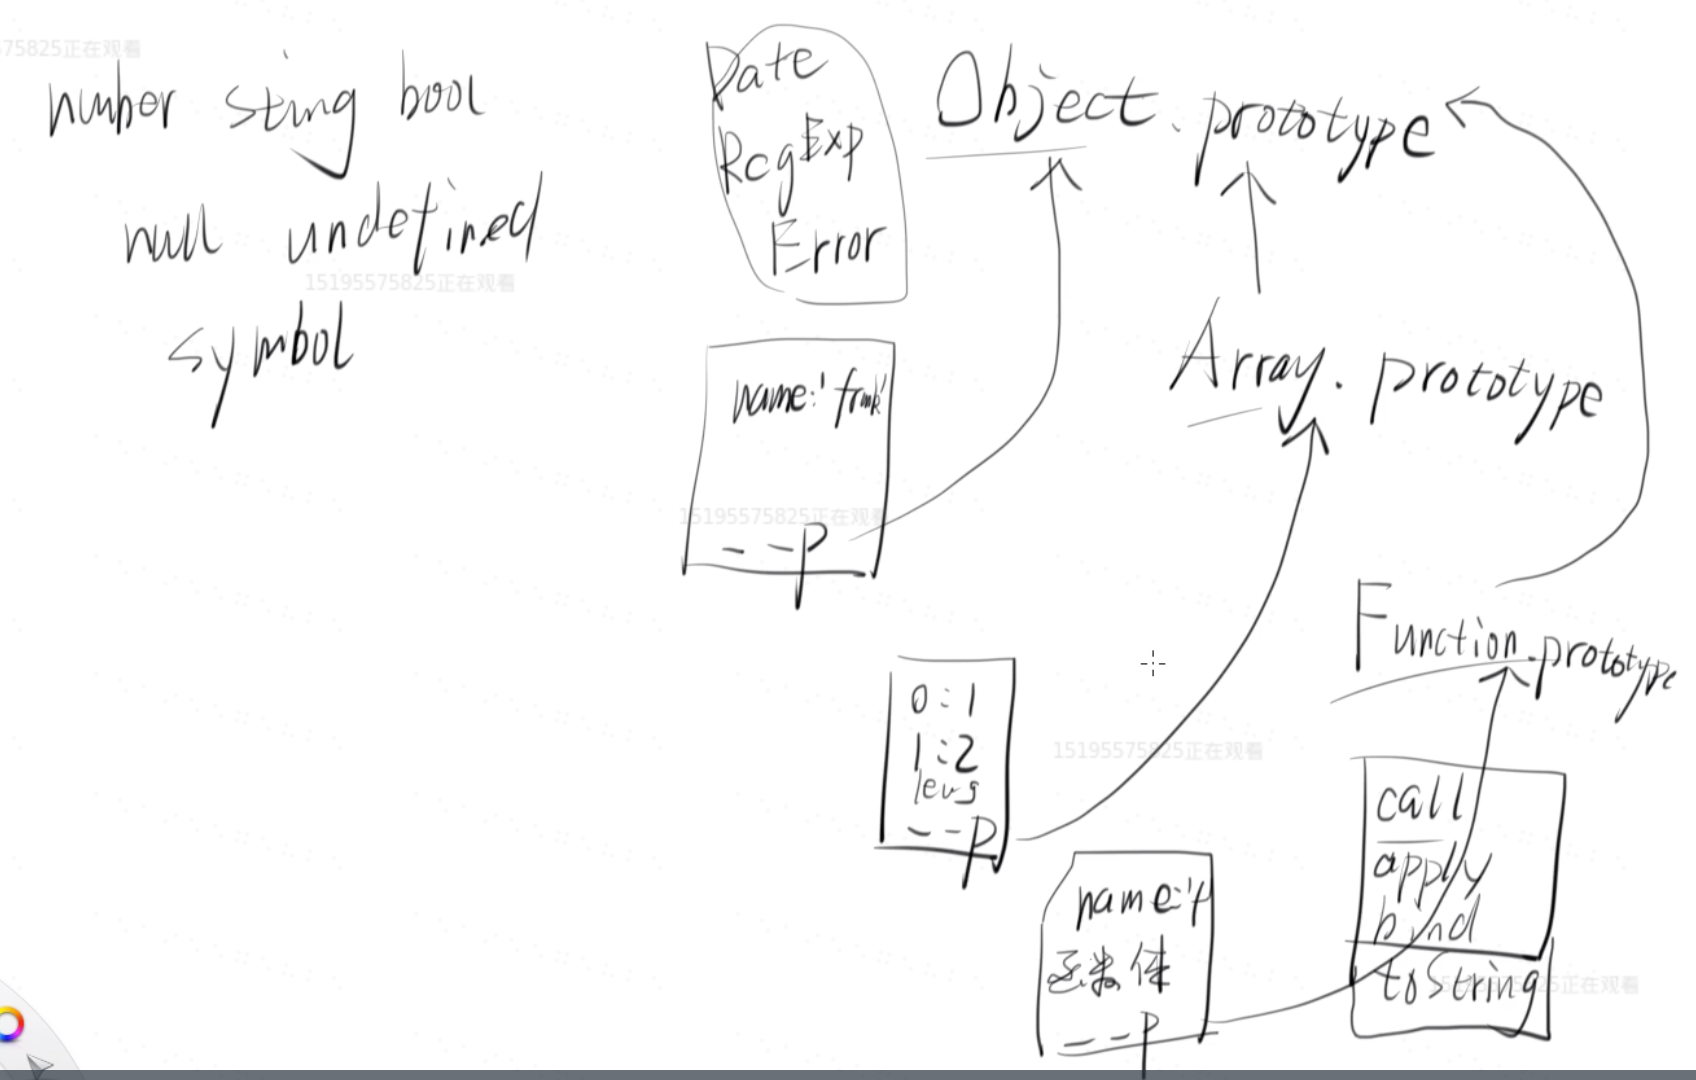 75825正在观看
number string bool
null undefined
15195575825正在观看
symbol
Date
RegExp
Error
Object.prototype
Array.prototype
name:'frank'
15195575825正在观看
--p
Function.prototype
0:1
1:2
--p
15195575825正在观看
call
apply
bind
toString
15195575825正在观看
name:'f
函数体
--p